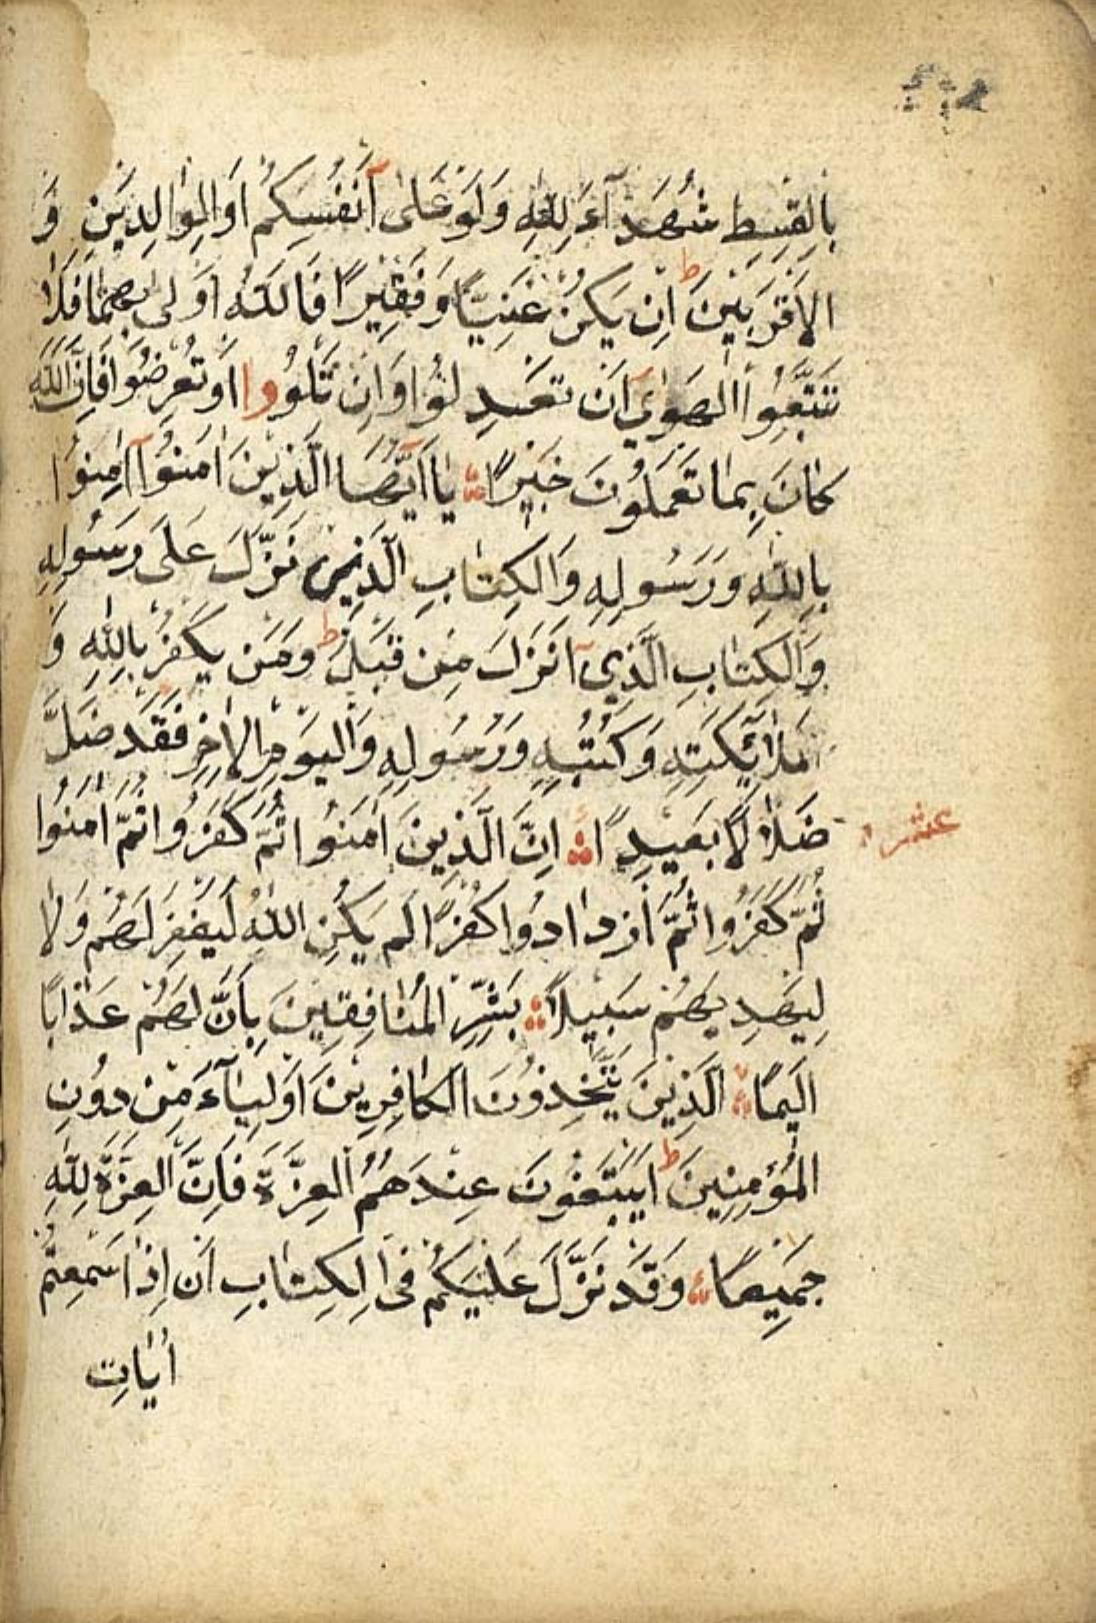 بِالْقِسْطِ شُهَدَآءَ لِلّٰهِ وَلَوْ عَلٰى اَنْفُسِكُمْ اَوِ الْوَالِدَيْنِ وَ
الْاَقْرَبِيْنَ ط اِنْ يَكُنْ غَنِيًّا وَفَقِيْرًا فَاللّٰهُ اَوْلٰى بِهِمَا فَلَا
تَتَّبِعُوا الْهَوٰىٓ اَنْ تَعْدِلُوْا وَاِنْ تَلْوُوا اَوْ تُعْرِضُوْا فَاِنَّ اللّٰهَ
كَانَ بِمَا تَعْمَلُوْنَ خَبِيْرًا يَا اَيُّهَا الَّذِيْنَ اٰمَنُوْآ اٰمِنُوْا
بِاللّٰهِ وَرَسُوْلِهِ وَالْكِتَابِ الَّذِيْ نَزَّلَ عَلٰى رَسُوْلِهِ
وَالْكِتَابِ الَّذِيْٓ اَنْزَلَ مِنْ قَبْلُ ط وَمَنْ يَكْفُرْ بِاللّٰهِ وَ
مَلٰٓائِكَتِهِ وَكُتُبِهِ وَرَسُوْلِهِ وَالْيَوْمِ الْاٰخِرِ فَقَدْ ضَلَّ
ضَلَالًا بَعِيْدًا اِنَّ الَّذِيْنَ اٰمَنُوْا ثُمَّ كَفَرُوْا ثُمَّ اٰمَنُوْا
عشر
ثُمَّ كَفَرُوْا ثُمَّ ازْدَادُوْا كُفْرًا لَمْ يَكُنِ اللّٰهُ لِيَغْفِرَ لَهُمْ وَلَا
لِيَهْدِيَهُمْ سَبِيْلًا بَشِّرِ الْمُنَافِقِيْنَ بِاَنَّ لَهُمْ عَذَابًا
اَلِيْمًا الَّذِيْنَ يَتَّخِذُوْنَ الْكَافِرِيْنَ اَوْلِيَآءَ مِنْ دُوْنِ
الْمُؤْمِنِيْنَ ط اَيَبْتَغُوْنَ عِنْدَهُمُ الْعِزَّةَ فَاِنَّ الْعِزَّةَ لِلّٰهِ
جَمِيْعًا وَقَدْ نَزَّلَ عَلَيْكُمْ فِى الْكِتَابِ اَنْ اِذَا سَمِعْتُمْ
اٰيَاتِ